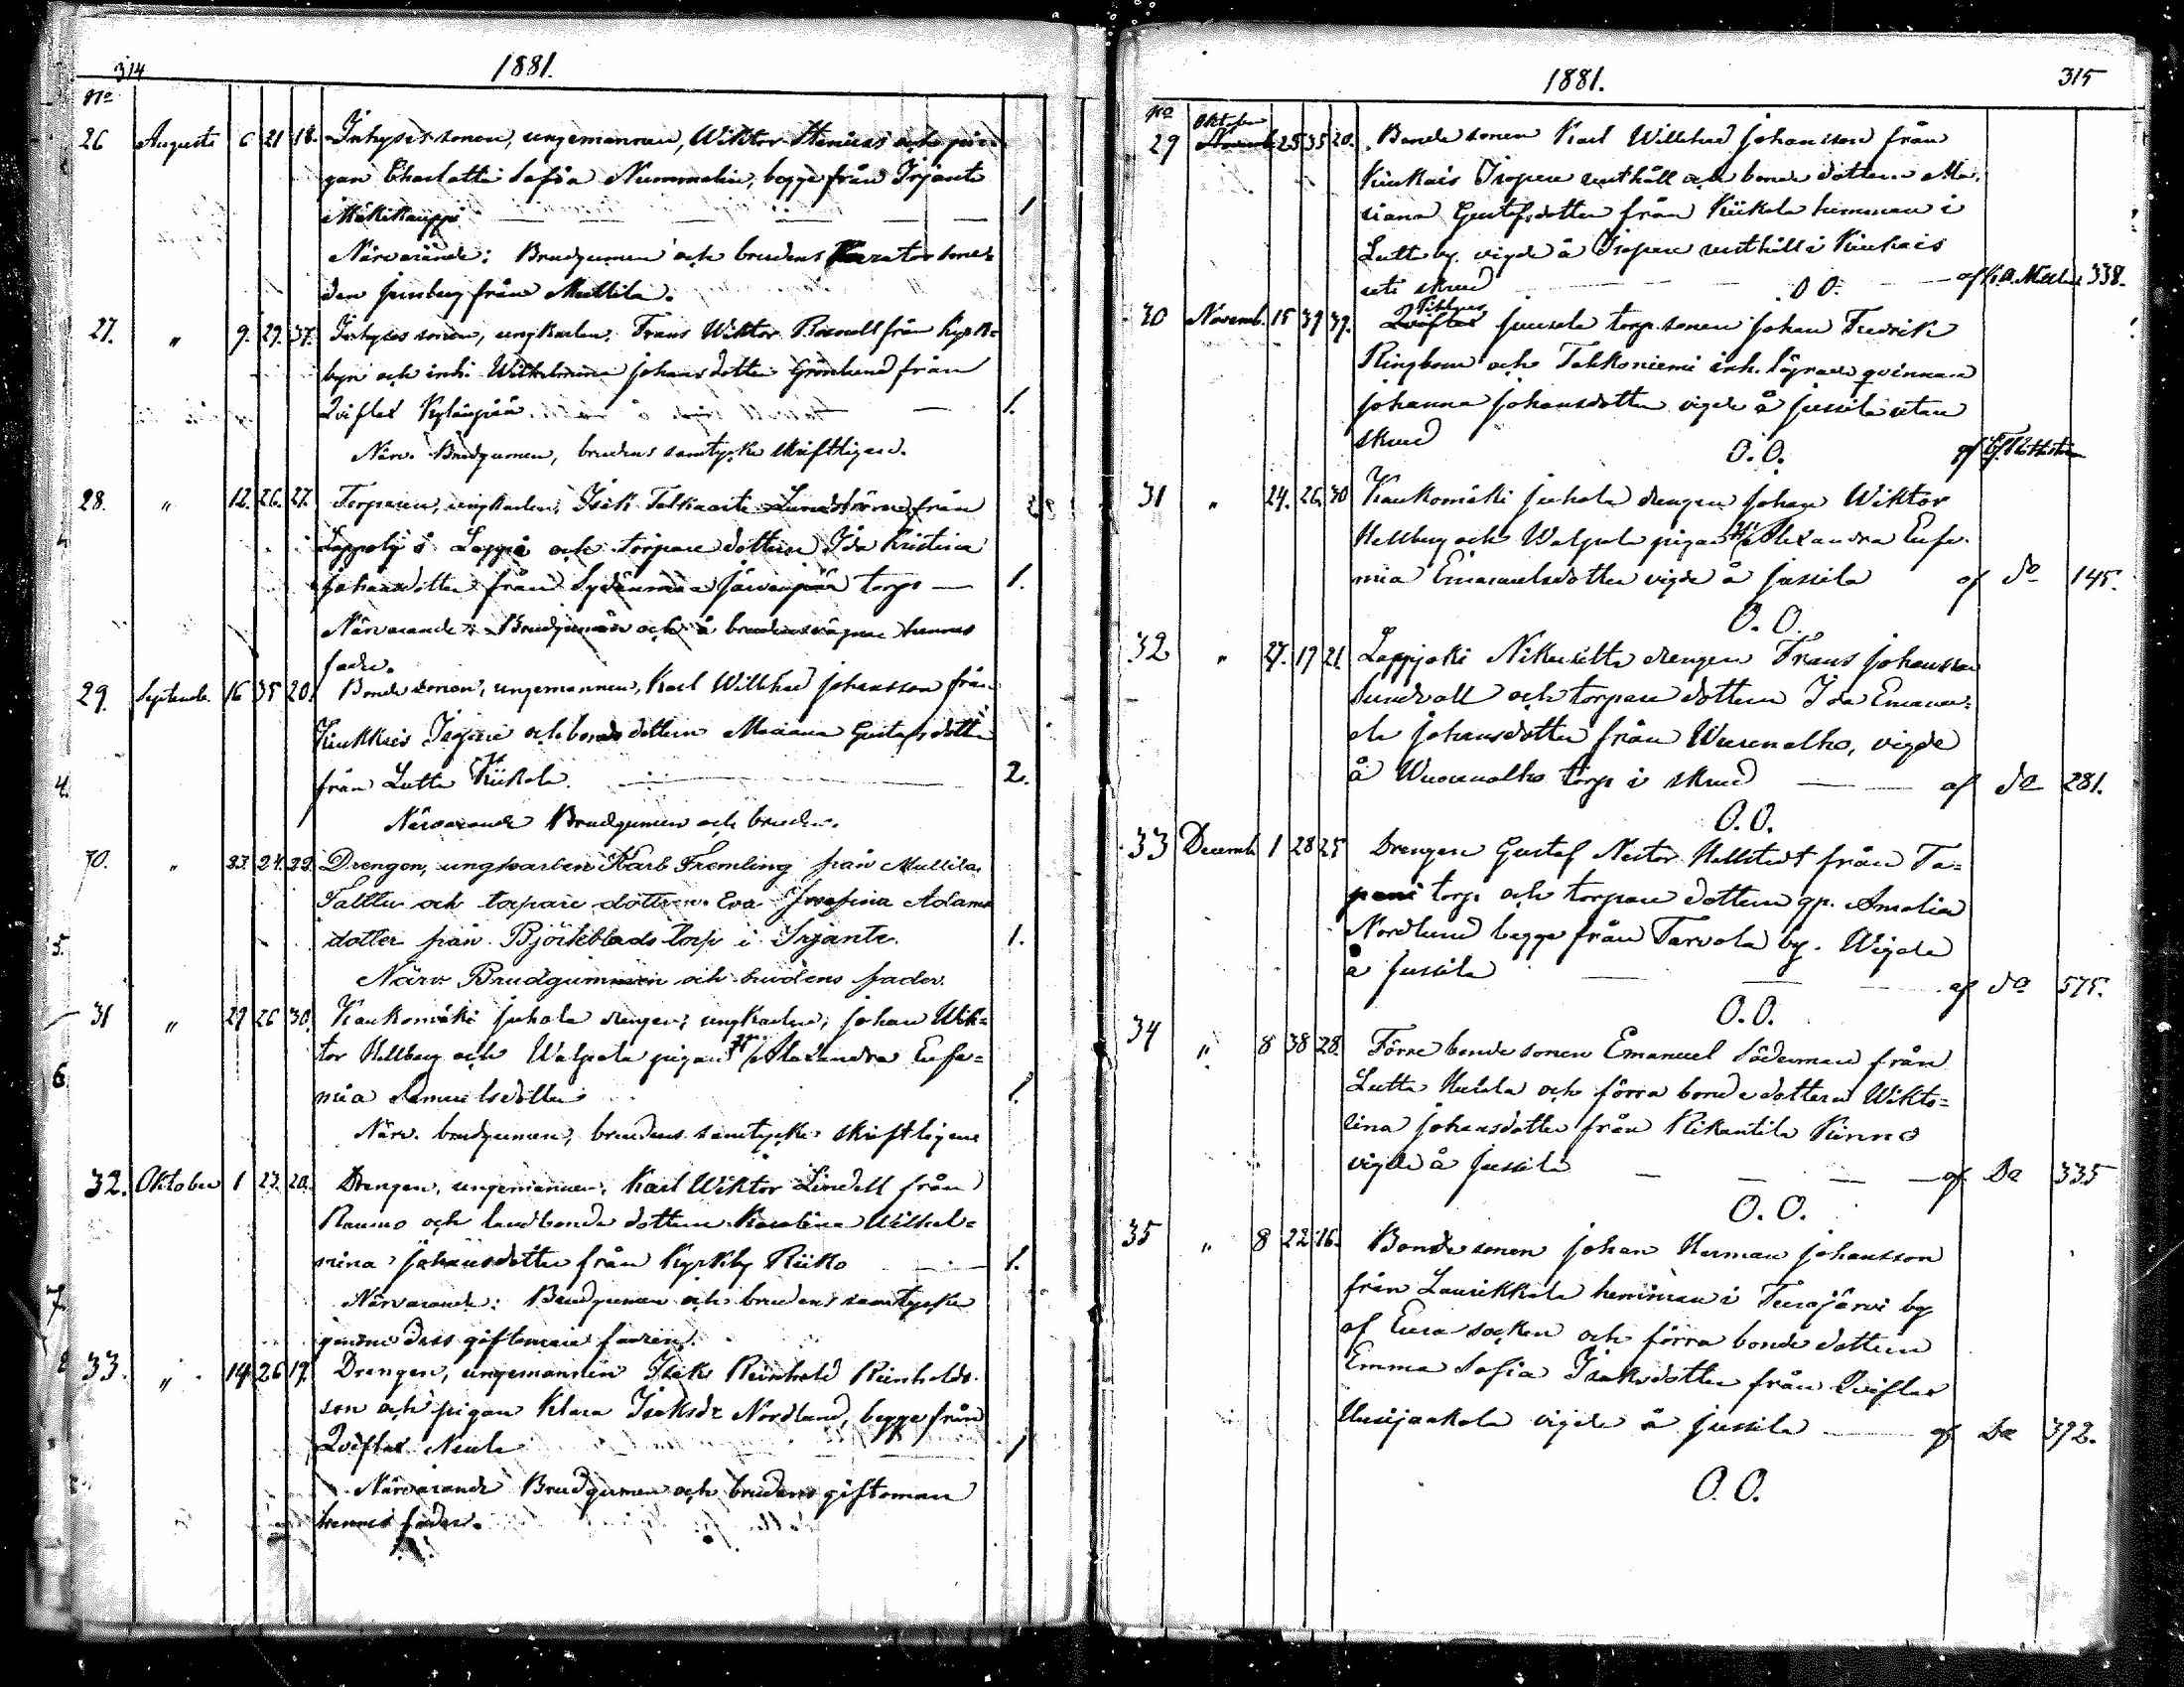 314
1881.
No
26 Augusti 6 21 18. Inhyses sonen, ungemannen, Wiktor Stenius och pi-
gan Charlotta Sofia Nummelin, begge från Irjante
Mäkikauppi — — — — 1
Närvarande: Brudgumen och brudens Kurator smeden
från Mullila.
27. " 9. 29. 37. Inhyses sonen, ungkarlen, Frans Wiktor Rosnell från Kyrko-
byn och inh. Wilhelmina Johansdotter Grönlund från
Qviflax Kylänpää — 1.
Närv. Brudgumen, brudens samtycke skriftligen.
28. " 12. 26. 27. Torparen, ungkarlen, Isak Lundström från
Lappi och torpare dottern Ida Kristina
Johansdotter från Sydänmaa Järvenpää torp — 1.
Närvarande: Brudgumen och å brudens vägnar hennes
fader.
29. Septemb. 16 35 20. Bonde sonen, ungemannen, Karl Willehad Johansson från
Kiukais Isopere och bonde dottern Mariana Gustafsdotter
från Lutta Kiikola. — 2.
Närvarande Brudgumen och bruden.
30. " 23. 24. 23. Drengen, ungkarlen Karl Fremling från Mullila
och torpare dottern Eva Josefina Adams
dotter från Björkblads torp i Irjante. 1.
Närv. Brudgummen och brudens fader.
31 " 29 26 30. Kaukomäki Juhola drengen, ungkarlen, Johan Wik=
tor Hellberg och Walpola pigan Alexandra Eufe=
mia Samuelsdotter 1.
Närv. brudgumen, brudens samtycke skriftligen
32. Oktober 1 23. 20. Drengen, ungemannen, Karl Wiktor Lindell från
Raumo och landbonde dottern Karolina Wilhel=
mina Johansdotter från Kyrkby Riiko — 1.
Närvarande: Brudgumen och brudens samtycke
genom dess giftoman fadren.
33. " 14 26 19. Drengen, ungemannen Isak Reinhold Reinholds
son och pigan Klara Isaksdr Nordlund, begge från
Qviflax 1
Närvarande Brudgumen och brudens giftoman
hennes fader.
1881.
315
No Oktober
29 Novemb. 25 35 20. Bonde sonen Karl Willehad Johansson från
Kiukais Isopere rusthåll och bonde dottern Ma-
riana Gustafsdotter från Kiikola hemman i
Lutta by. vigde å Isopere rusthåll i Kiukais
uti skrud O O. af 338.
30 Novemb. 15 39 39. Qviflax Jussila torp. sonen Johan Fredrik
Ringbom och Takkoniemi inh. lägrade qvinnan
Johanna Johansdotter vigde å Jussila utan
skrud O. O. af
31 " 24. 26. 30 Kaukomäki Juhola drengen Johan Wiktor
Hellberg och Walpola pigan Alexandra Eufe-
mia Emanuelsdotter vigde å Jussila af do 145.
O. O.
32 " 27. 19 21. Lappijoki Nikusilta drengen Frans Johansson
Sundvall och torpare dottern Ida Emanu=
ela Johansdotter från Wuorenalho, vigde
å Wuorenalho torp i skrud — af do 281.
O. O.
33 Decemb. 1 28 25 Drengen Gustaf Nestor Hellstedt från Ta=
pani torp och torpare dottern gp. Amalia
Nordlund begge från Tarvola by. Wigde
å Jussila — af do 575.
O. O.
34 " 8 38 28. Förre bonde sonen Emanuel Söderman från
Lutta och förra bonde dottern Wikto=
rina Johansdotter från Rikantila
vigde å Jussila — — — — af Do 335
O. O.
35 " 8 22 16. Bonde sonen Johan Herman Johansson
från Laurikkala hemman i Turajärvi by
af Eura socken och förra bonde dottern
Emma Sofia Isaksdotter från Qviflax
Uusijaakola vigde å Jussila — af Do 392.
O. O.